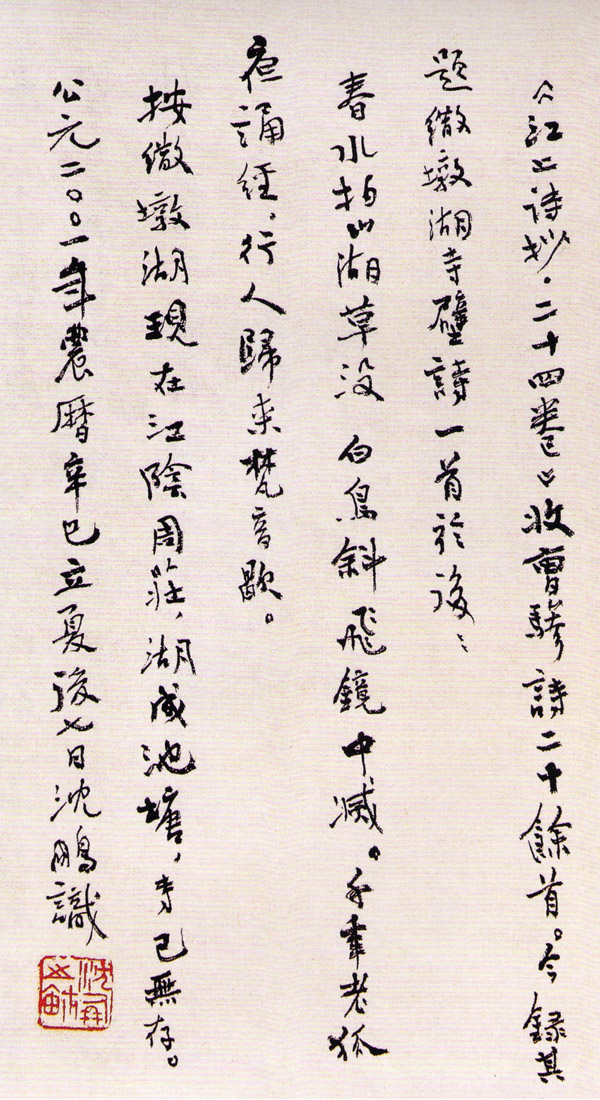 《江上诗抄·二十四卷》收曹骖詩二十餘首。今録其
題繳墩湖寺壁詩一首於後：
春水拍山湖草没 白鳥斜飛鏡中滅。千車老狐
夜誦經，行人歸来梵音歇。
按繳墩湖現在江陰周莊，湖成池塘，寺已無存。
公元二〇〇一年農曆辛巳立夏後七日沈鵬識